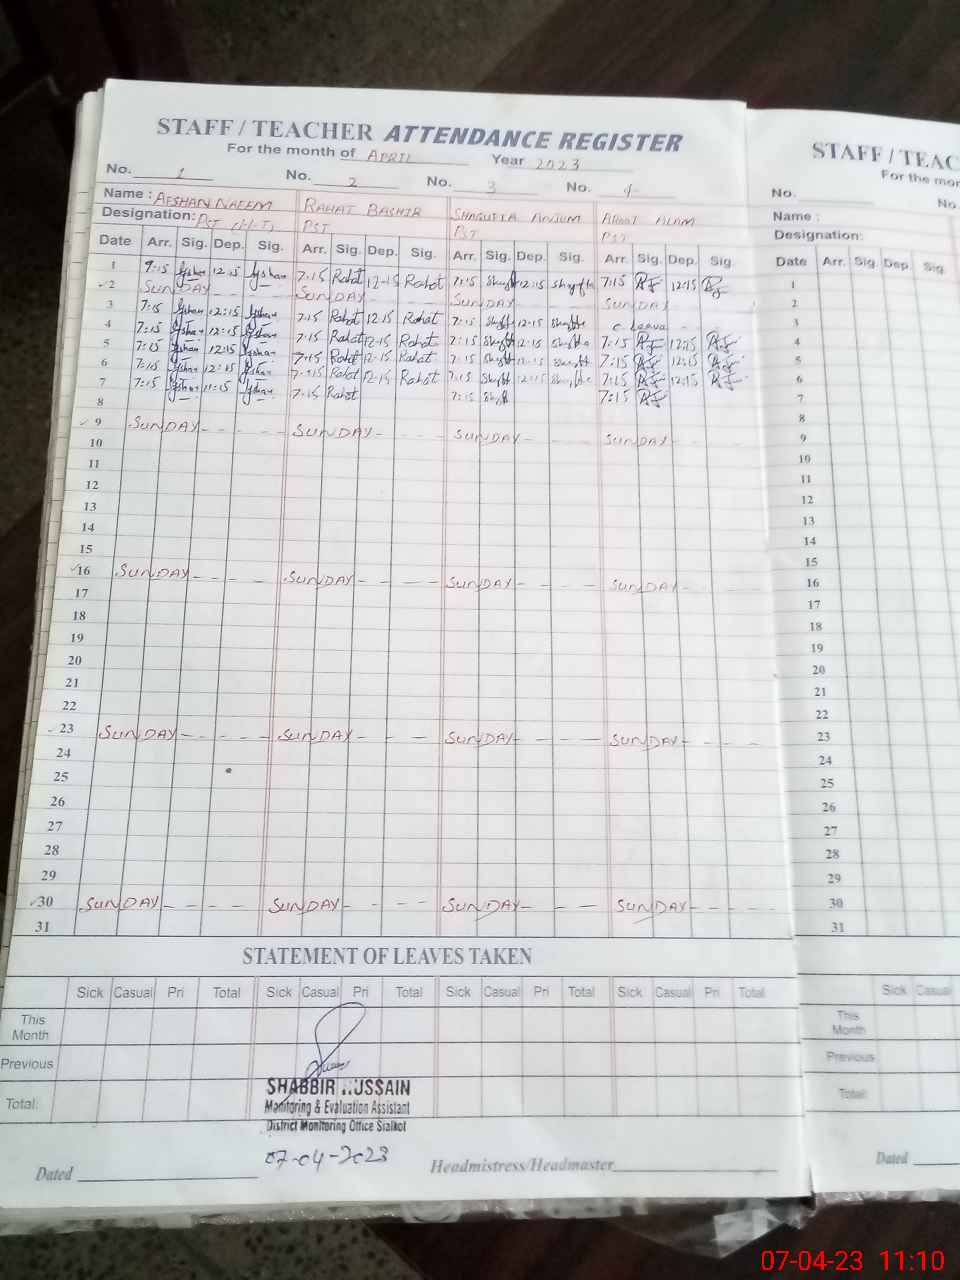 STAFF / TEACHER ATTENDANCE REGISTER
For the month of APRIL Year 2023
No. 1 No. 2 No. 3 No. 4
Name : AFSHAN NAEEM RAHAT BASHIR SHAGUFTA ANJUM
Designation: PST (H.T) PST PST PST
Date Arr. Sig. Dep. Sig. Arr. Sig. Dep. Sig. Arr. Sig. Dep. Sig. Arr. Sig. Dep. Sig.
1 12:15 7:15 Rahat 12:15 Rahat 7:15 12:15 7:15 12:15
2 SUNDAY SUNDAY SUNDAY SUNDAY
3 7:15 12:15 7:15 Rahat 12:15 Rahat 7:15 12:15 C. Leave
4 7:15 12:15 7:15 Rahat 12:15 Rahat 7:15 12:15 7:15 12:15
5 7:15 12:15 7:15 Rahat 12:15 Rahat 7:15 7:15 12:15
6 7:15 12:15 7:15 Rahat 12:15 Rahat 7:15 12:15 7:15 12:15
7 7:15 11:15 7:15 Rahat 7:15 7:15
8
9 SUNDAY SUNDAY SUNDAY SUNDAY
10
11
12
13
14
15
16 SUNDAY SUNDAY SUNDAY SUNDAY
17
18
19
20
21
22
23 SUNDAY SUNDAY SUNDAY SUNDAY
24
25
26
27
28
29
30 SUNDAY SUNDAY SUNDAY SUNDAY
31
STATEMENT OF LEAVES TAKEN
Sick Casual Pri Total Sick Casual Pri Total Sick Casual Pri Total Sick Casual Pri Total
This
Month
Previous
Total:
SHABBIR HUSSAIN
Monitoring & Evaluation Assistant
District Monitoring Office Sialkot
07-04-2023
Dated Headmistress/Headmaster
STAFF / TEAC
For the mon
No. No.
Name :
Designation:
Date Arr. Sig. Dep. Sig.
1
2
3
4
5
6
7
8
9
10
11
12
13
14
15
16
17
18
19
20
21
22
23
24
25
26
27
28
29
30
31
Sick Casual
This
Month
Previous
Total:
Dated
07-04-23 11:10